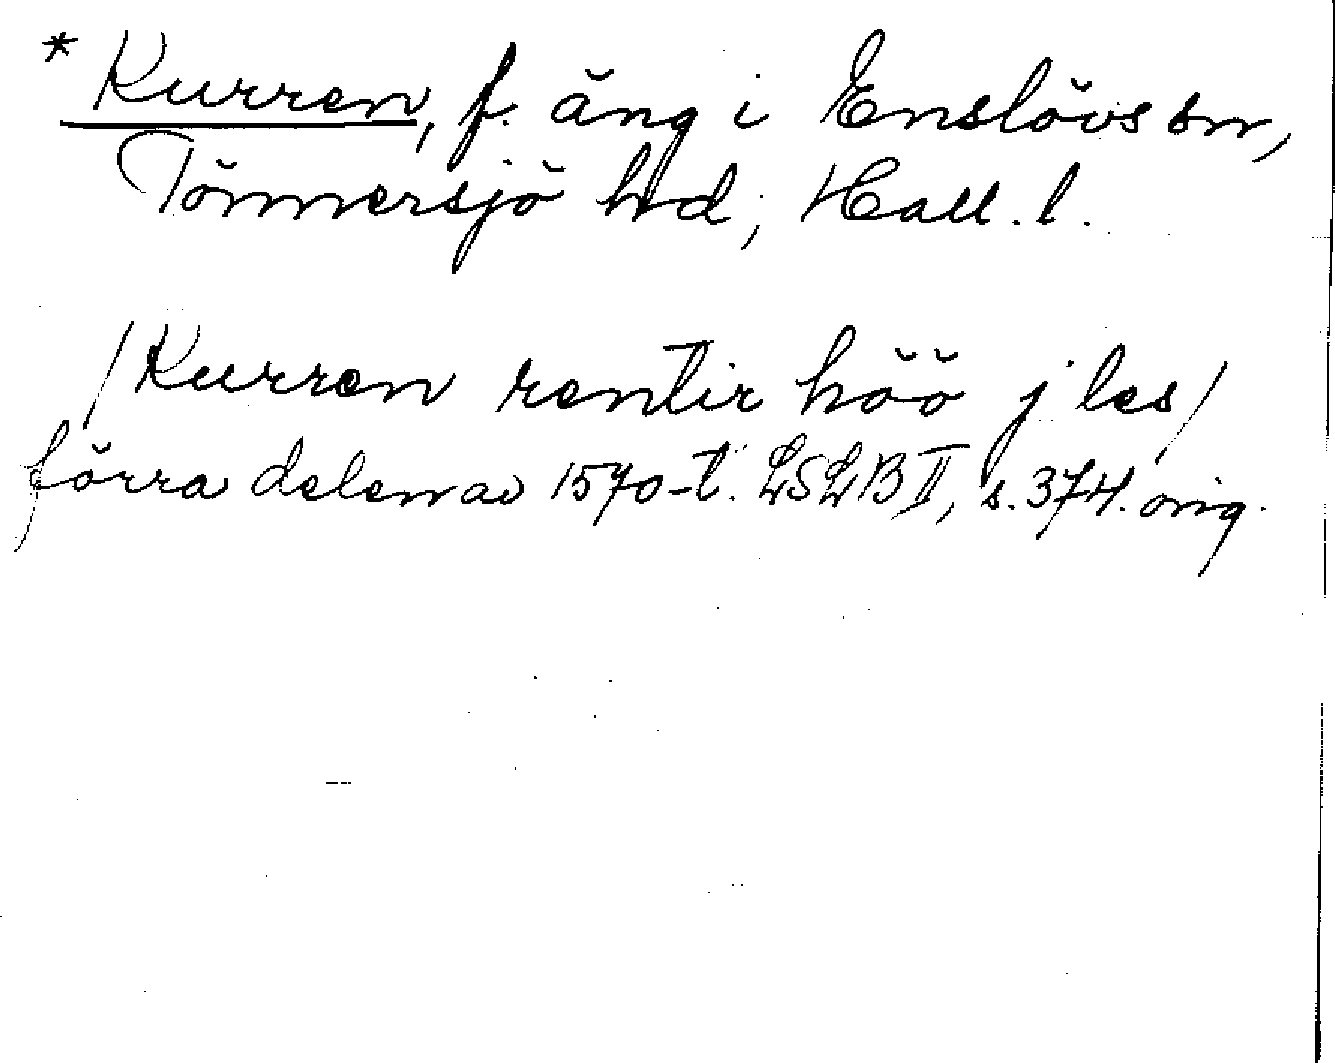 * Kurren, f. äng i Enslövs sn,
Tönnersjö hd, Hall. l.
/Kurren rentir höö j les/
förra delen av 1570-t. LSLB II, s. 374. orig.